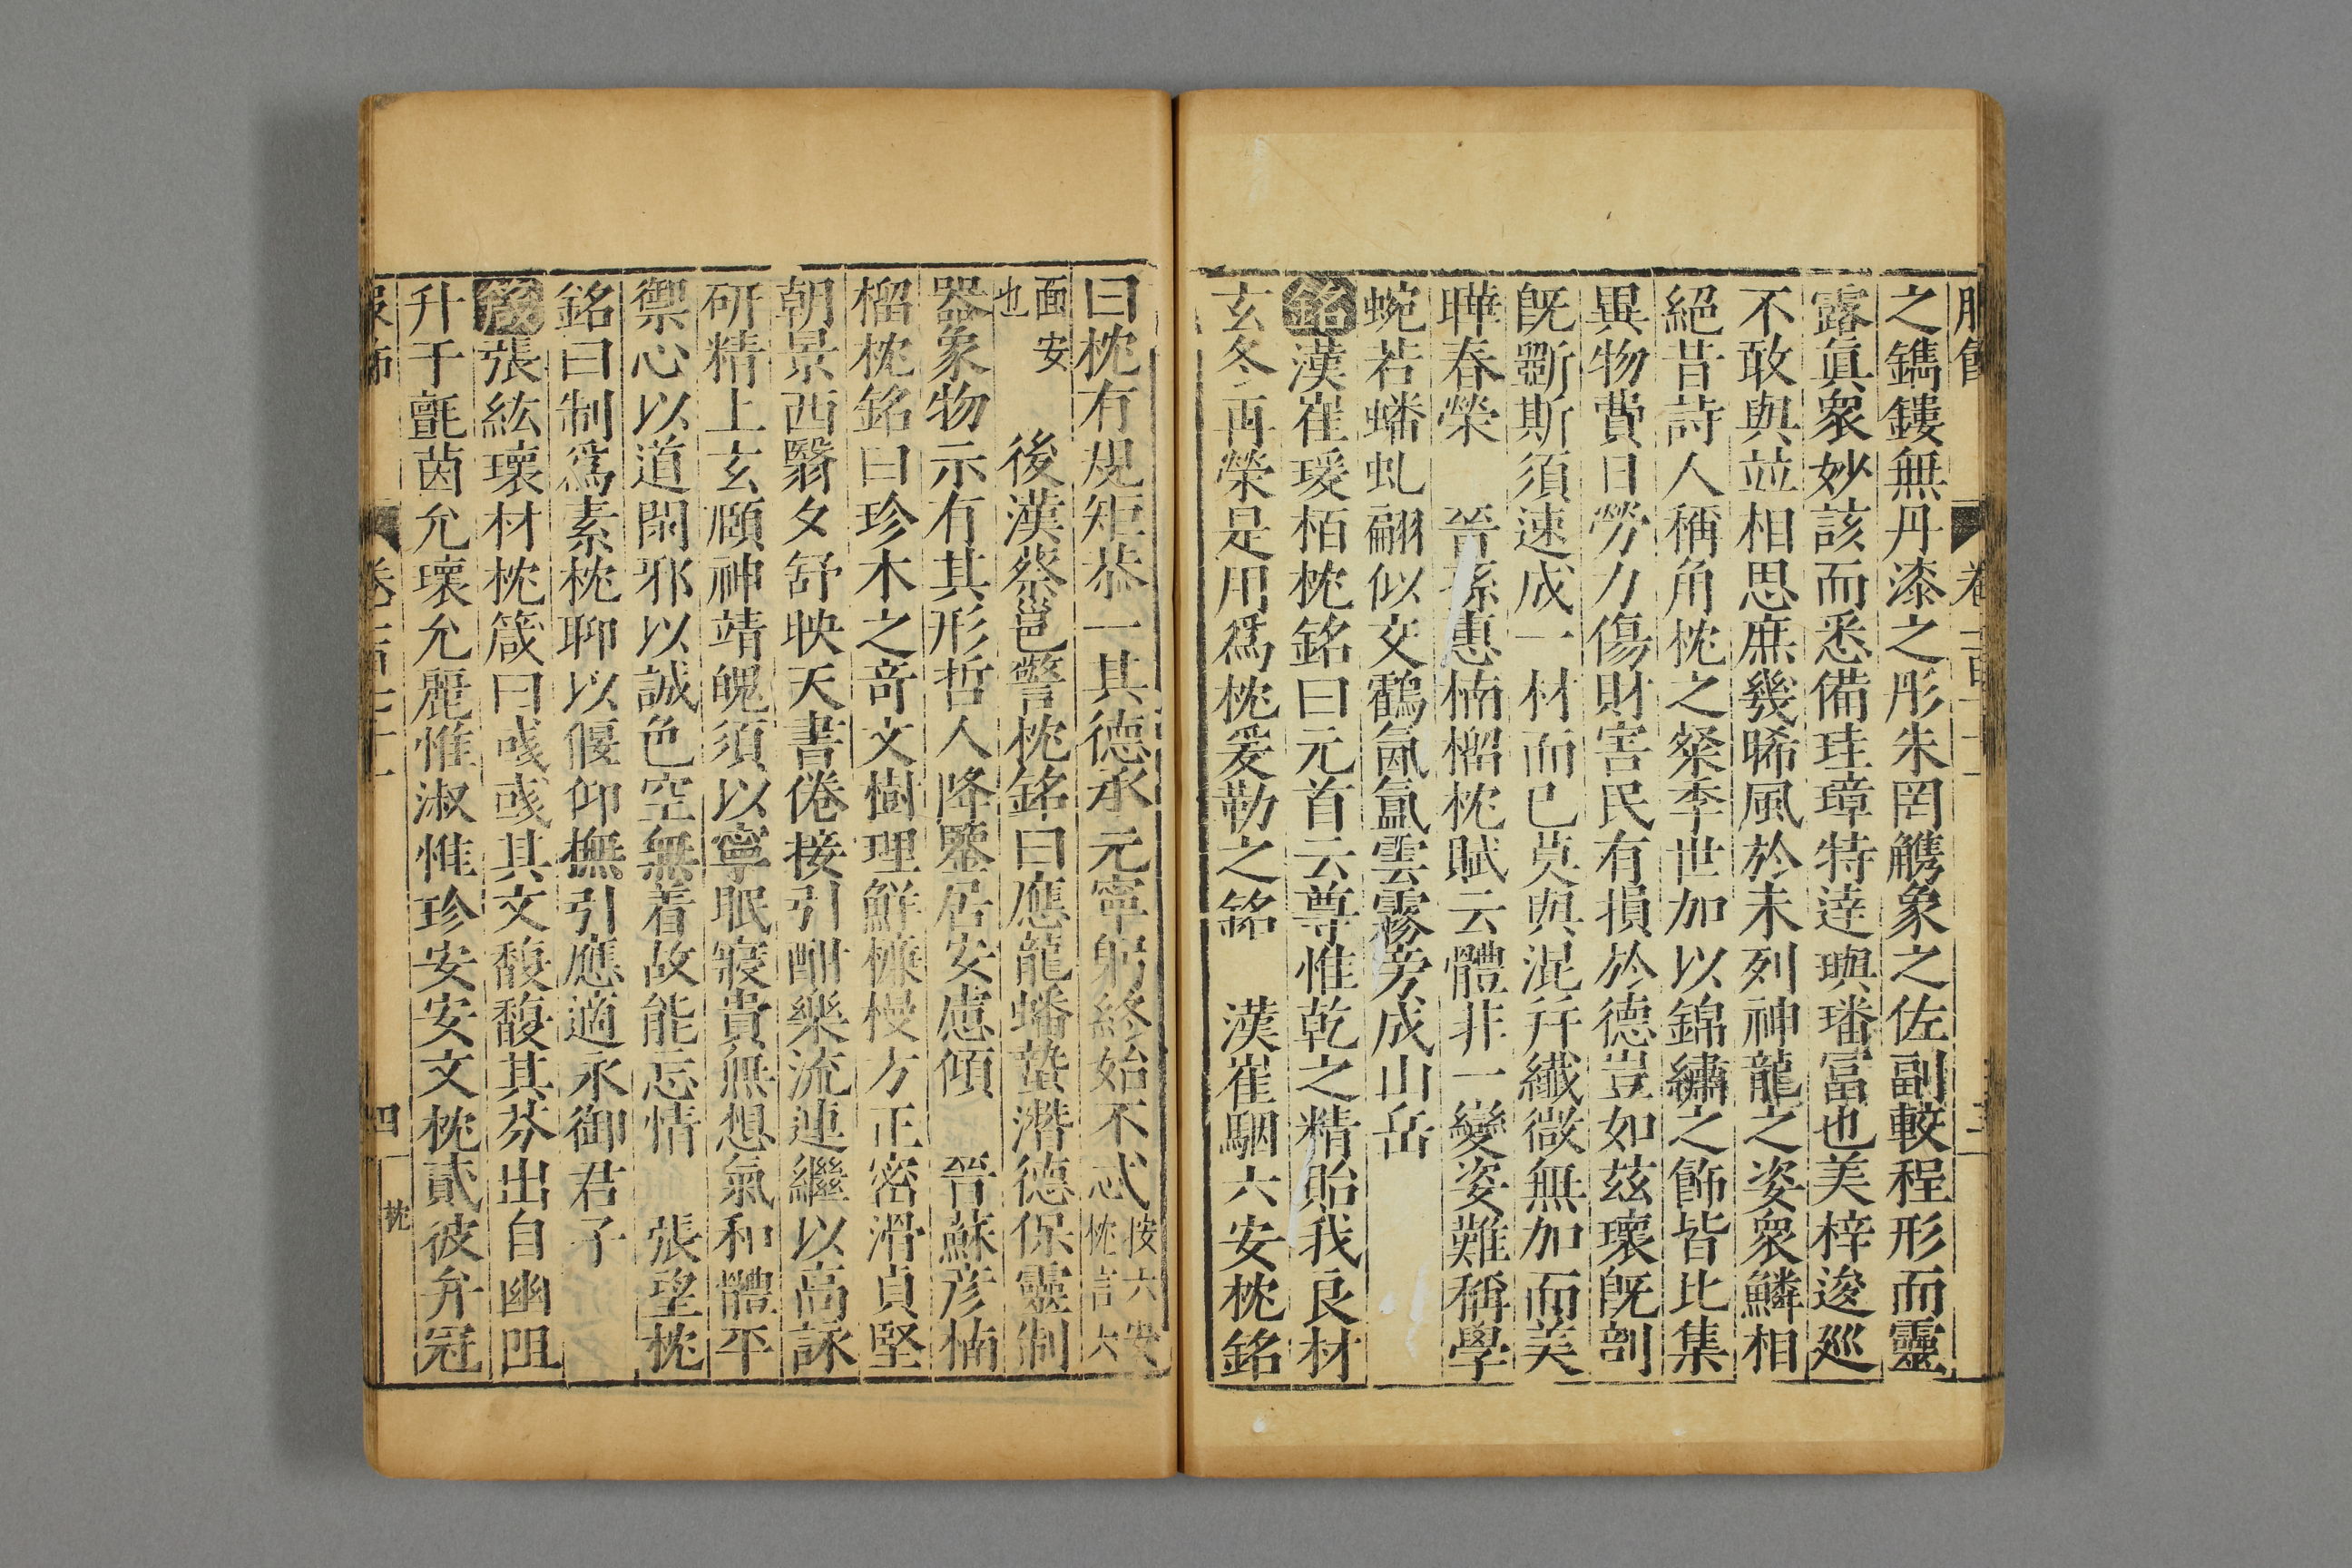 之鐫鏤無丹漆之彤朱罔觹象之佐副較程形而靈
露眞衆妙該而悉備珪璋特達璵璠富也美梓逡巡
不敢與竝相思庶幾晞風於未列神龍之姿衆鱗相
絕昔詩人稱角枕之粲季世加以錦繡之飾皆比集
異物費日勞力傷財害民有損於德豈如茲瓌旣剖
旣斵斯須速成一材而已莫與混幷纖微無加而美
曄春榮 晉孫惠楠榴枕賦云體非一變姿難稱學
蜿若蟠虬翩似交鶴氤氳雲霧旁成山岳
銘漢崔瑗栢枕銘曰元首云尊惟乾之精貽我良材
玄冬再榮是用爲枕爰勒之銘 漢崔駰六安枕銘
曰枕有規矩恭一其德承元寧躬終始不忒按六安枕言六
面安也 後漢蔡邕警枕銘曰應龍蟠蟄潛德保靈制
器象物示有其形哲人降鑒居安慮傾 晉蘇彥楠
榴枕銘曰珍木之奇文樹理鮮㯠榠方正密滑貞堅
朝景西翳夕舒映天書倦接引酣樂流連繼以高詠
研精上玄頤神靖魄須以寧眠寢貴無想氣和體平
禦心以道閑邪以誠色空無着故能忘情 張望枕
銘曰制爲素枕聊以偃仰撫引應適永御君子
箴張紘瓌材枕箴曰彧彧其文馥馥其芬出自幽阻
升于氈茵允瓌允麗惟淑惟珍安安文枕貳彼弁冠
四 枕